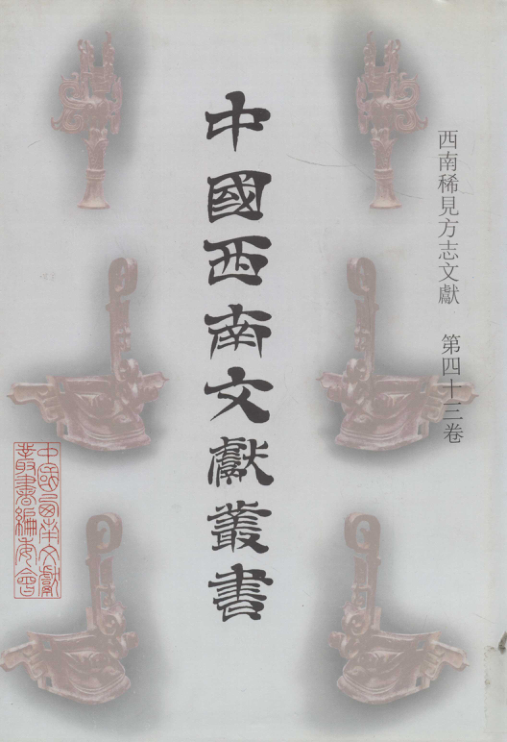 西南稀見方志文獻 第四十三卷
中國西南文獻叢書
中國西南文獻
叢書編委會